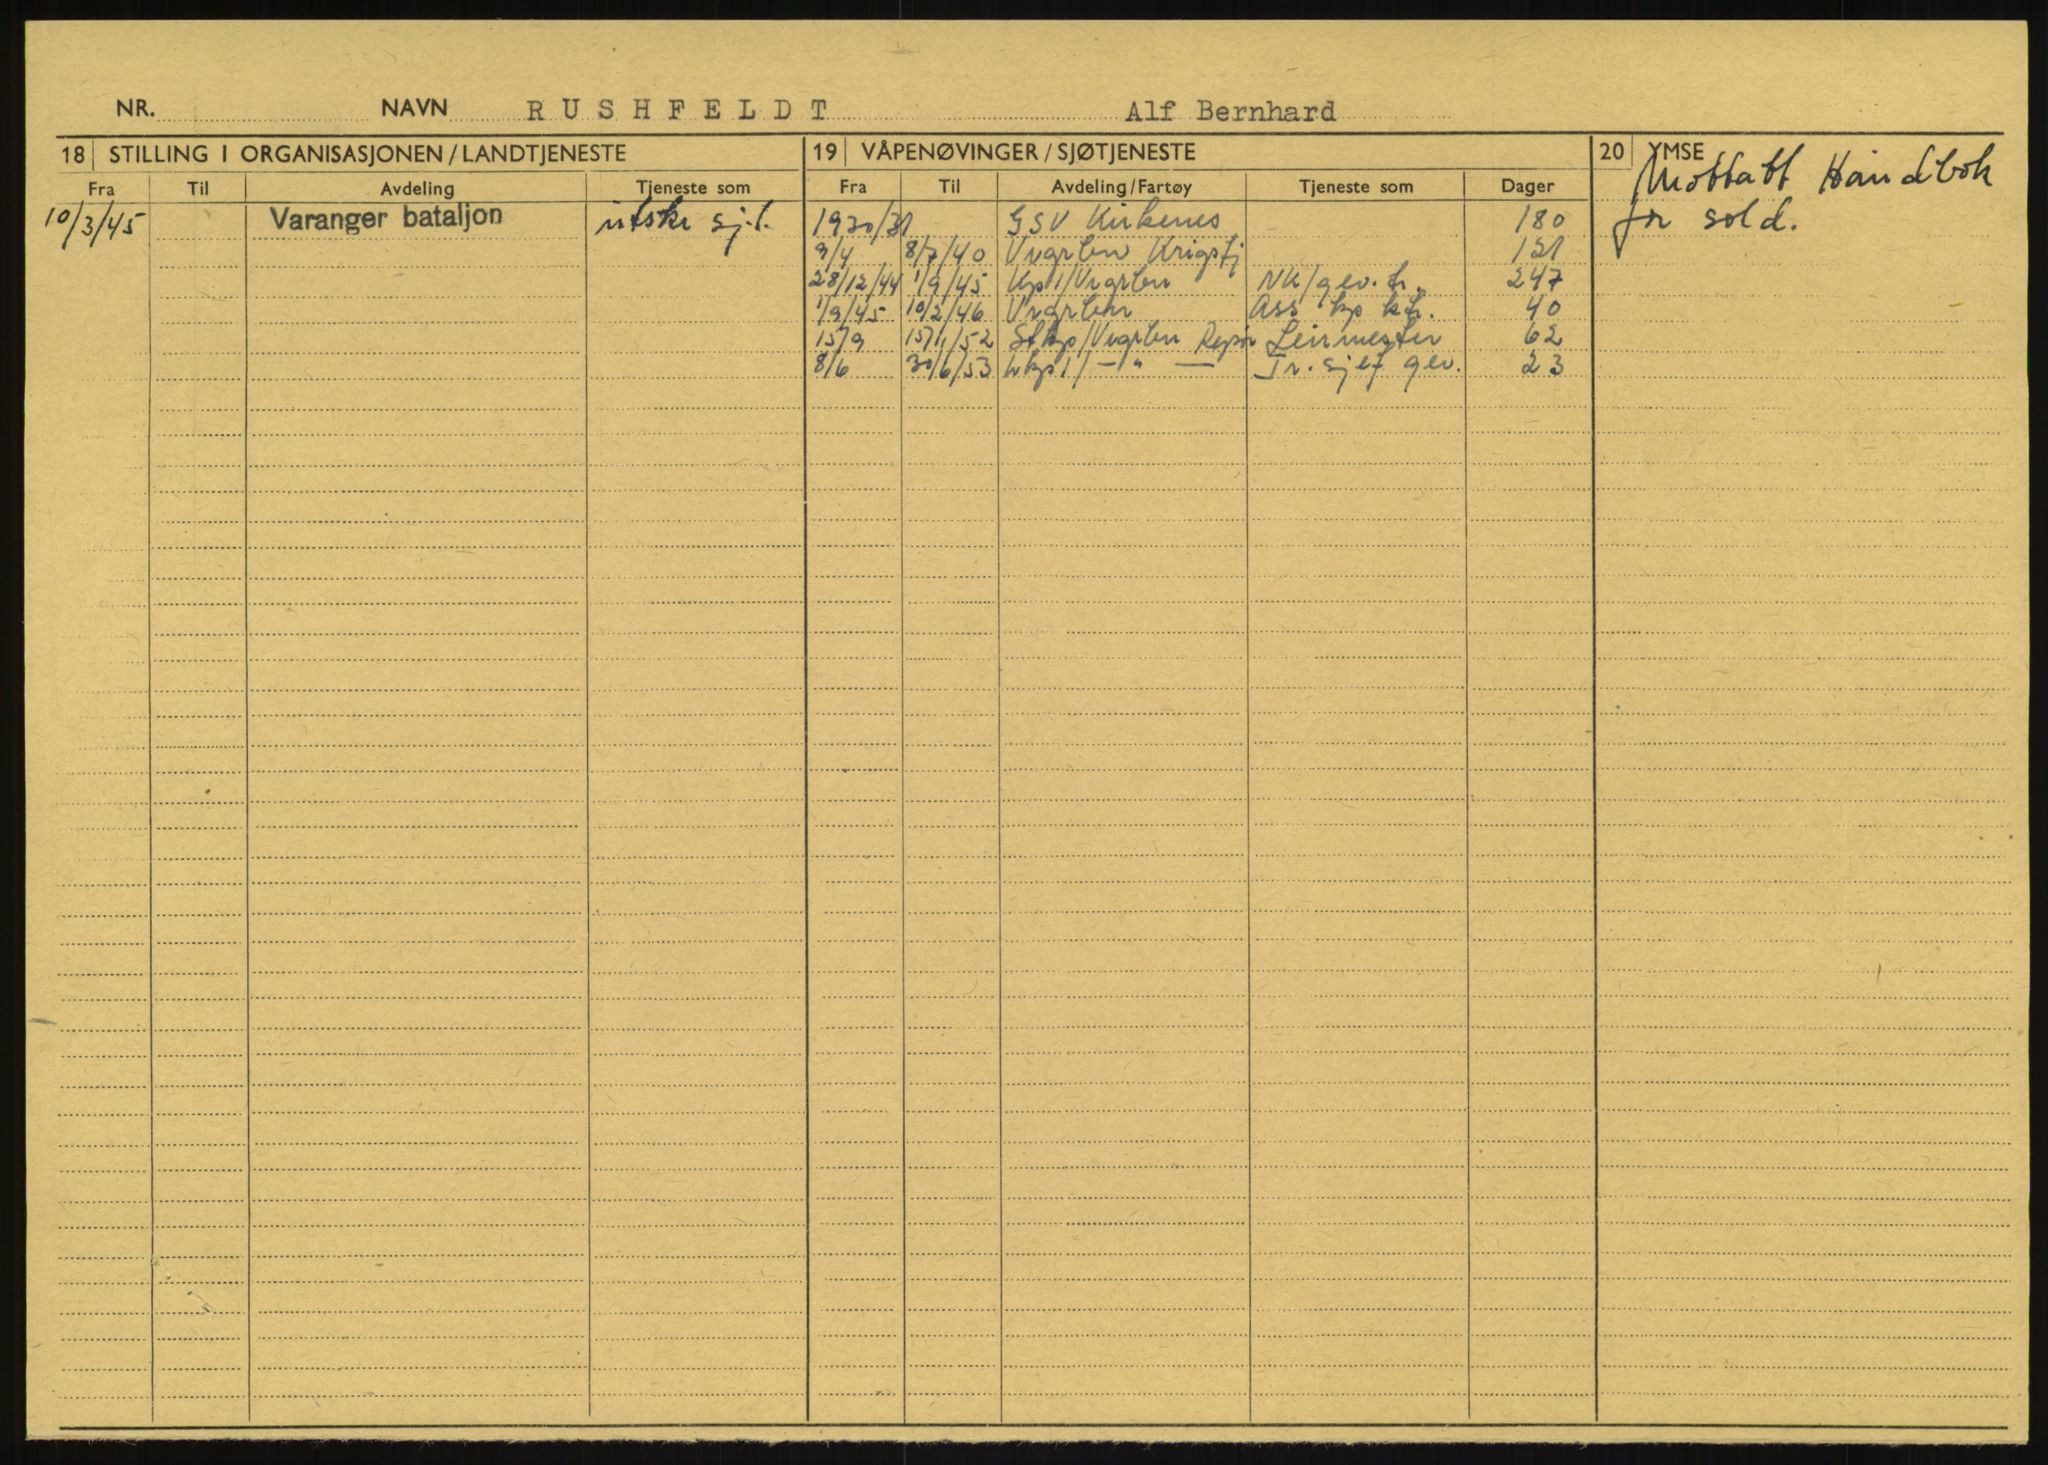 NR. NAVN RUSHFELDT Alf Bernhard
18 STILLING I ORGANISASJONEN/LANDTJENESTE 19 VÅPENØVINGER/SJØTJENESTE 20 YMSE
Fra Til Avdeling Tjeneste som Fra Til Avdeling/Fartøy Tjeneste som Dager
Mottatt Håndbok
for sold.
10/3/45 Varanger bataljon utskr sj.l. 1930/31 GSV Kirkenes 180
9/4 8/7/40 Vngrbn Krigstj 121
28/12/44 1/9/45 Kp1/Vngrbn NK/gev.tr. 247
1/9/45 10/2/46 Vngrbn Ass kp kd. 40
15/9 15/11/52 Stkp/Vngrbn Repøv Leirmester 62
8/6 30/6/53 kp 1/ — " — Tr. sjef gev. 23